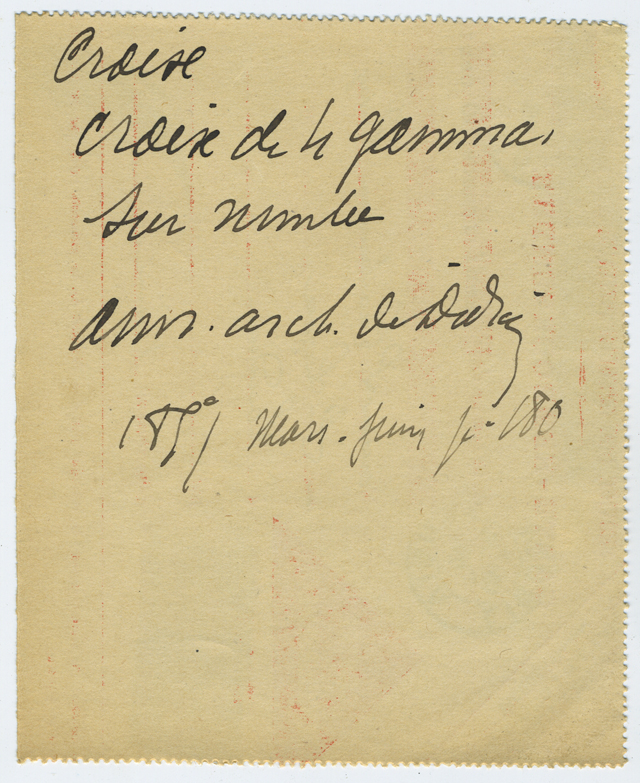 Croise
Croix de 4 gamma.
sur nimbe
Ann. arch. de Didron
Mars. Juin p. 180